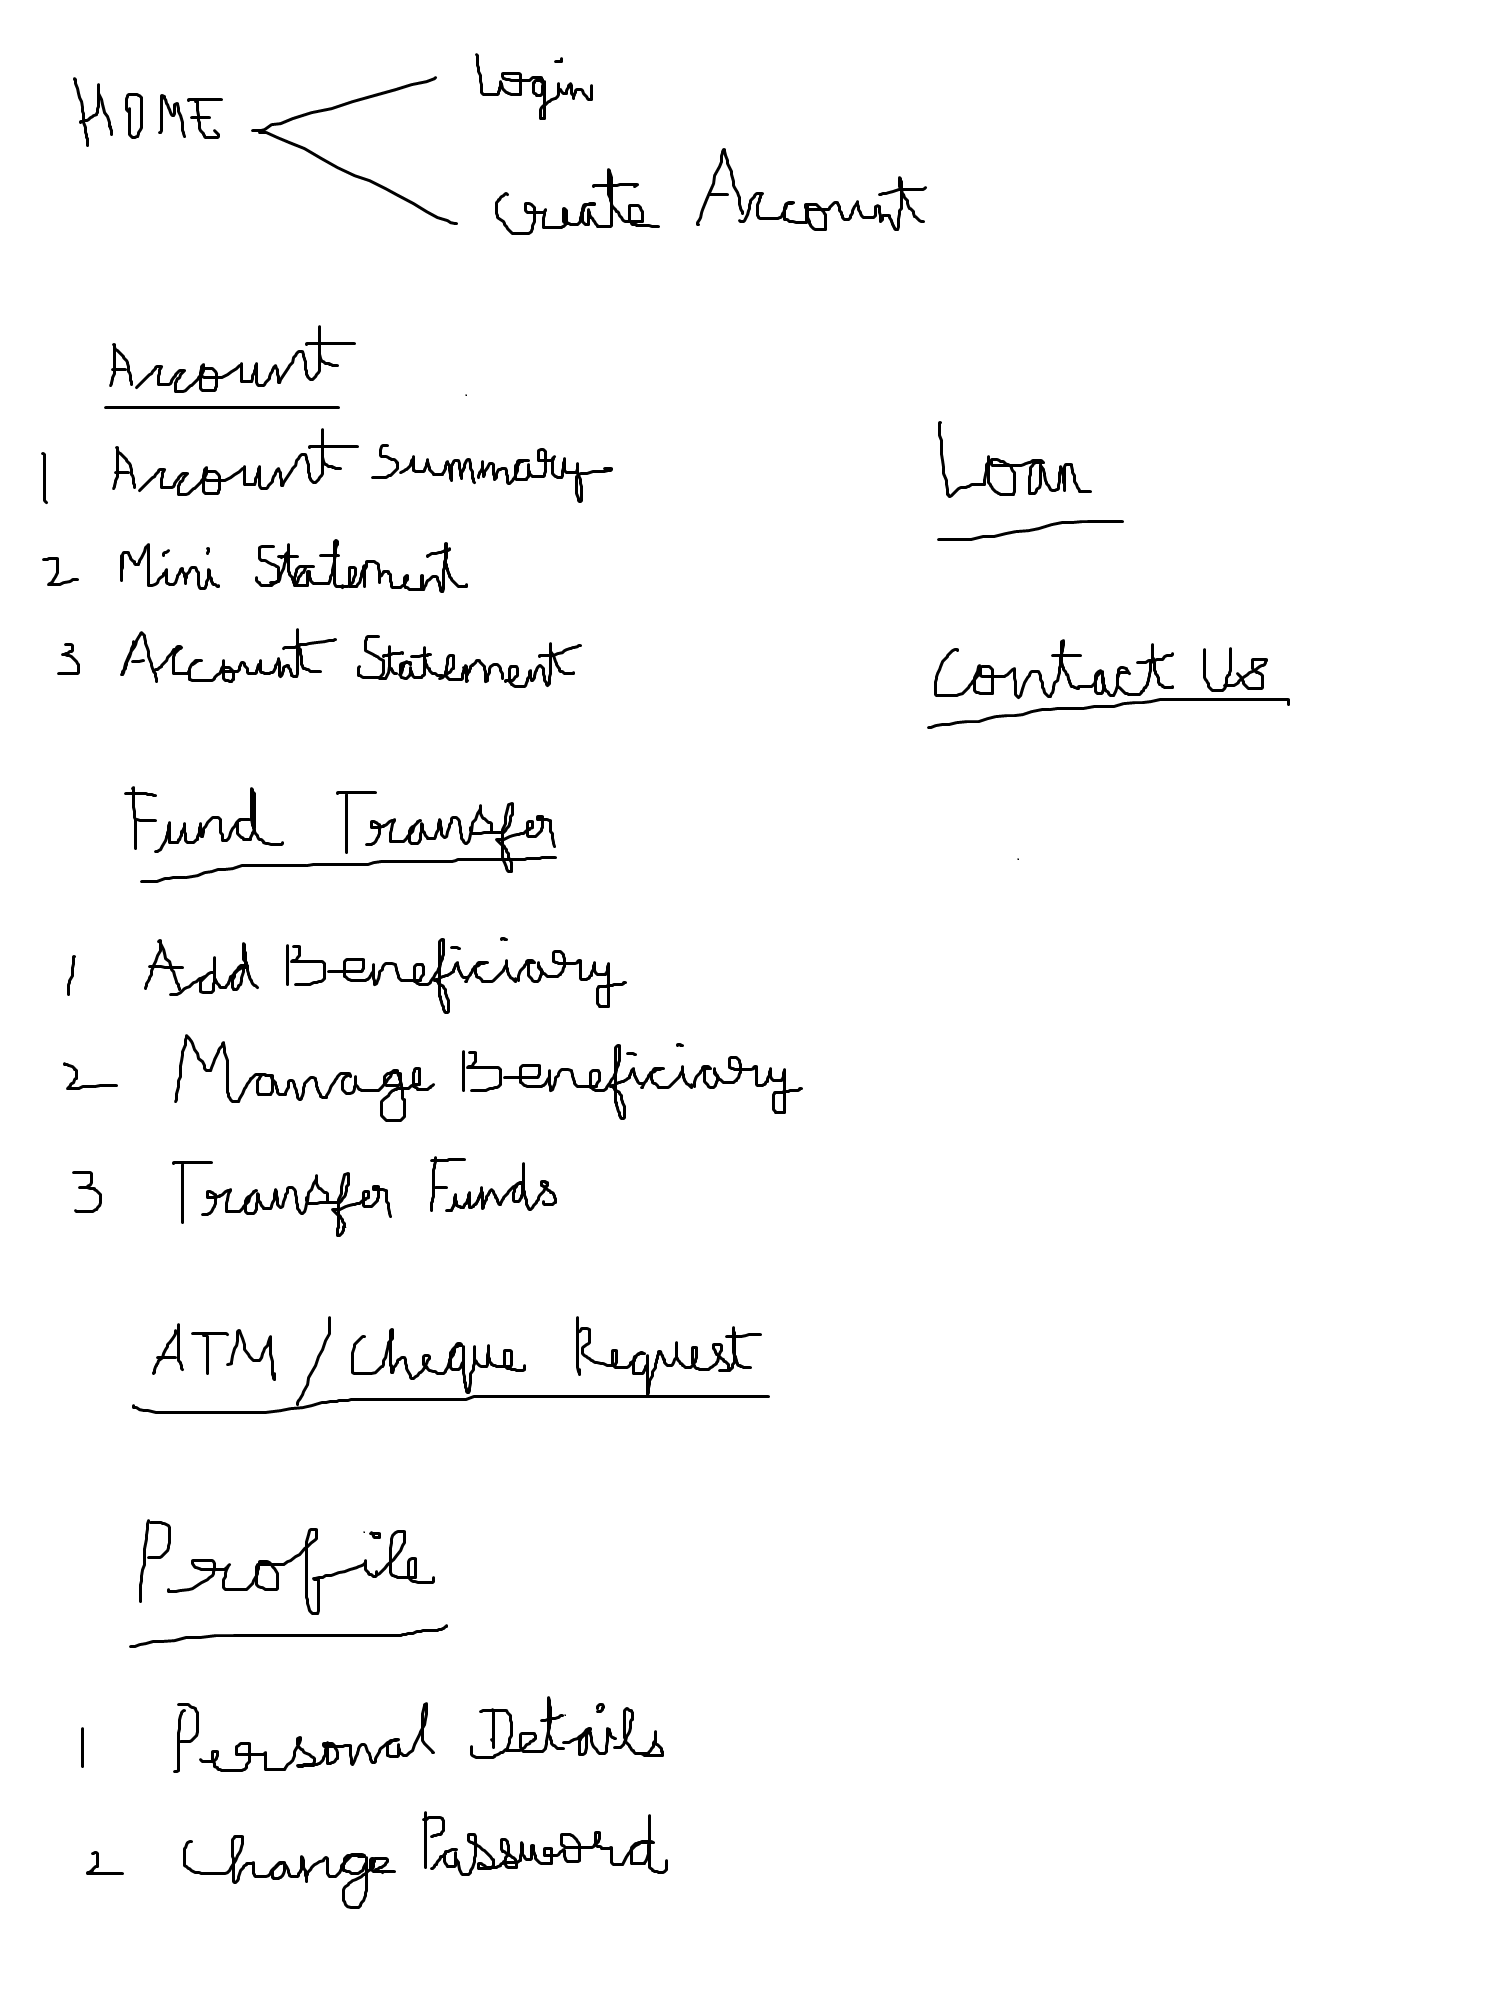 Login
HOME
Create Account
Account
1 Account Summary
2 Mini Statement
3 Account Statement
Fund Transfer
1 Add Beneficiary
2 Manage Beneficiary
3 Transfer Funds
ATM / Cheque Request
Profile
1 Personal Details
2 Change Password
Loan
Contact Us